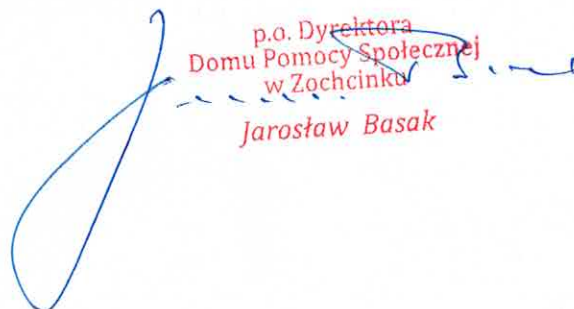 p.o. Dyrektora
Domu Pomocy Społecznej
w Zochcinku
Jarosław Basak